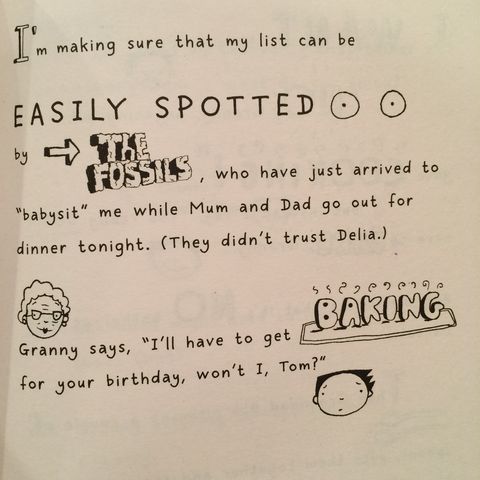 I'm making sure that my list can be
EASILY SPOTTED
by THE FOSSILS, who have just arrived to
"babysit" me while Mum and Dad go out for
dinner tonight. (They didn't trust Delia.)
Granny says, "I'll have to get BAKING
for your birthday, won't I, Tom?"